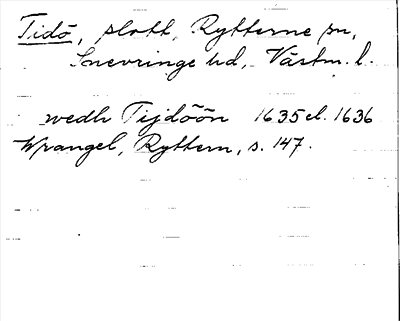 Tidö, slott, Rytterne sn,
Snevringe hd, Västm. l.
wedh Tijdöön 1635 el. 1636
Wrangel, Ryttern, s. 147.